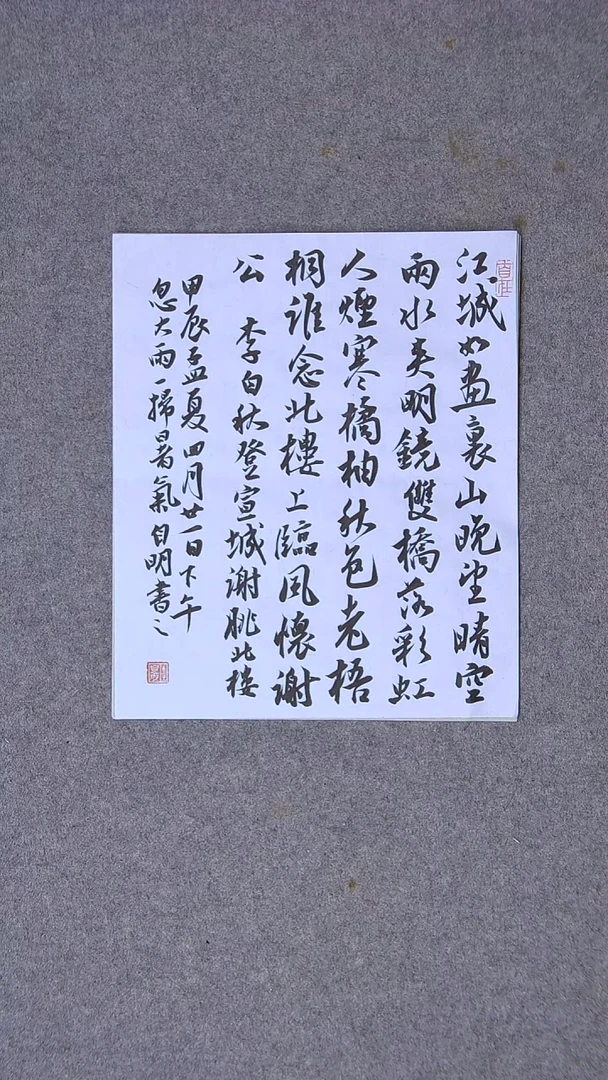 江城如畫裏山晚望晴空
兩水夾明鏡雙橋落彩虹
人煙寒橘柚秋色老梧
桐誰念此樓上臨風懷謝
公 李白秋登宣城謝眺北樓
甲辰孟夏四月廿一日下午
忽大雨一掃暑氣自明書之